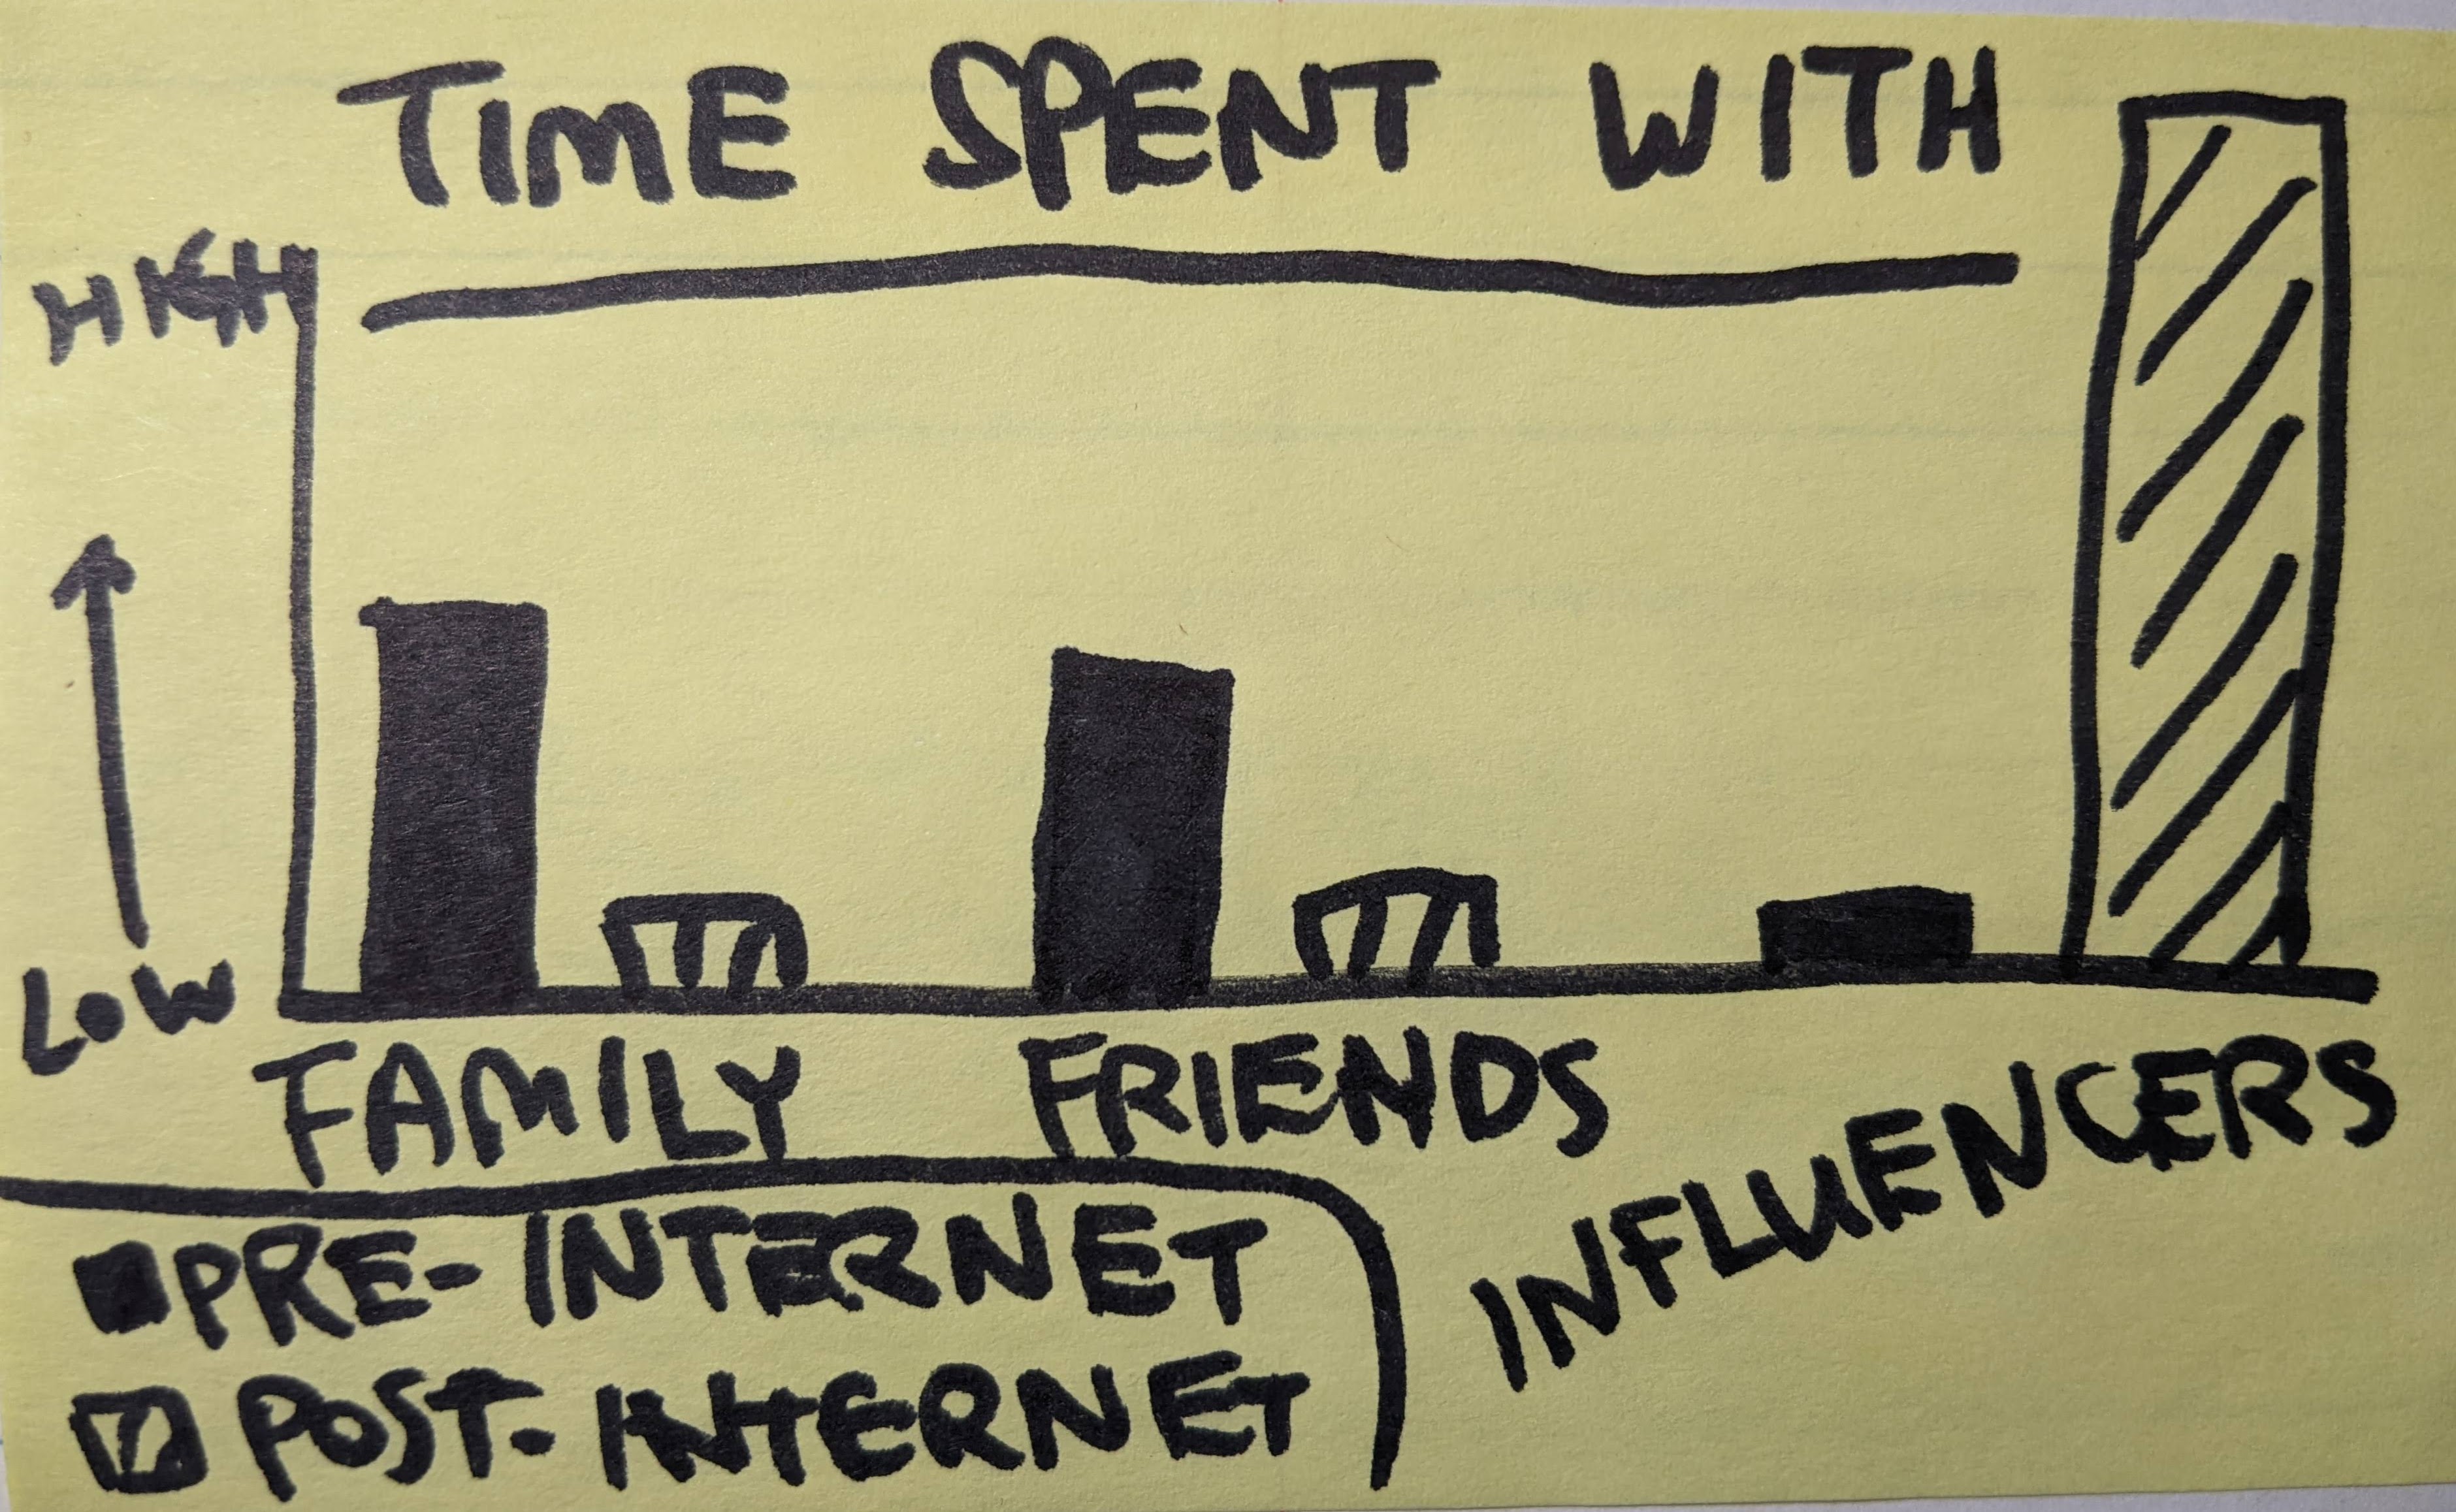 TIME SPENT WITH
HIGH
LOW
FAMILY FRIENDS INFLUENCERS
PRE-INTERNET
POST-INTERNET